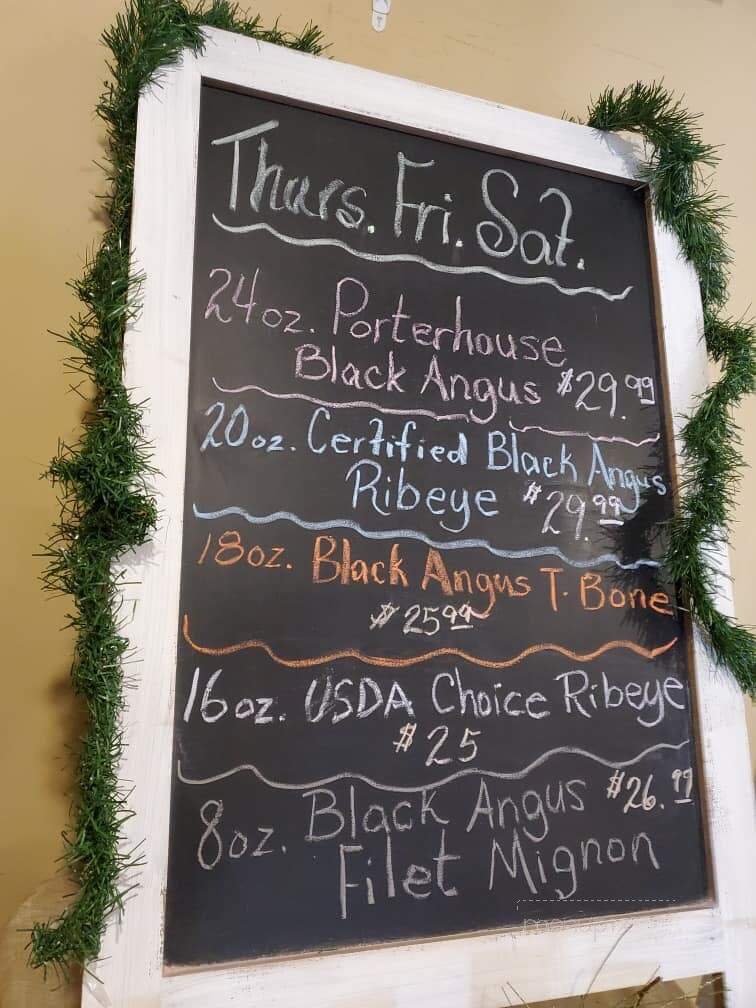 Thurs. Fri. Sat.
24oz. Porterhouse
Black Angus $29.99
20oz. Certified Black Angus
Ribeye $29.99
18oz. Black Angus T-Bone
$25 99
16oz. USDA Choice Ribeye
$25
8oz. Black Angus $26.99
Filet Mignon